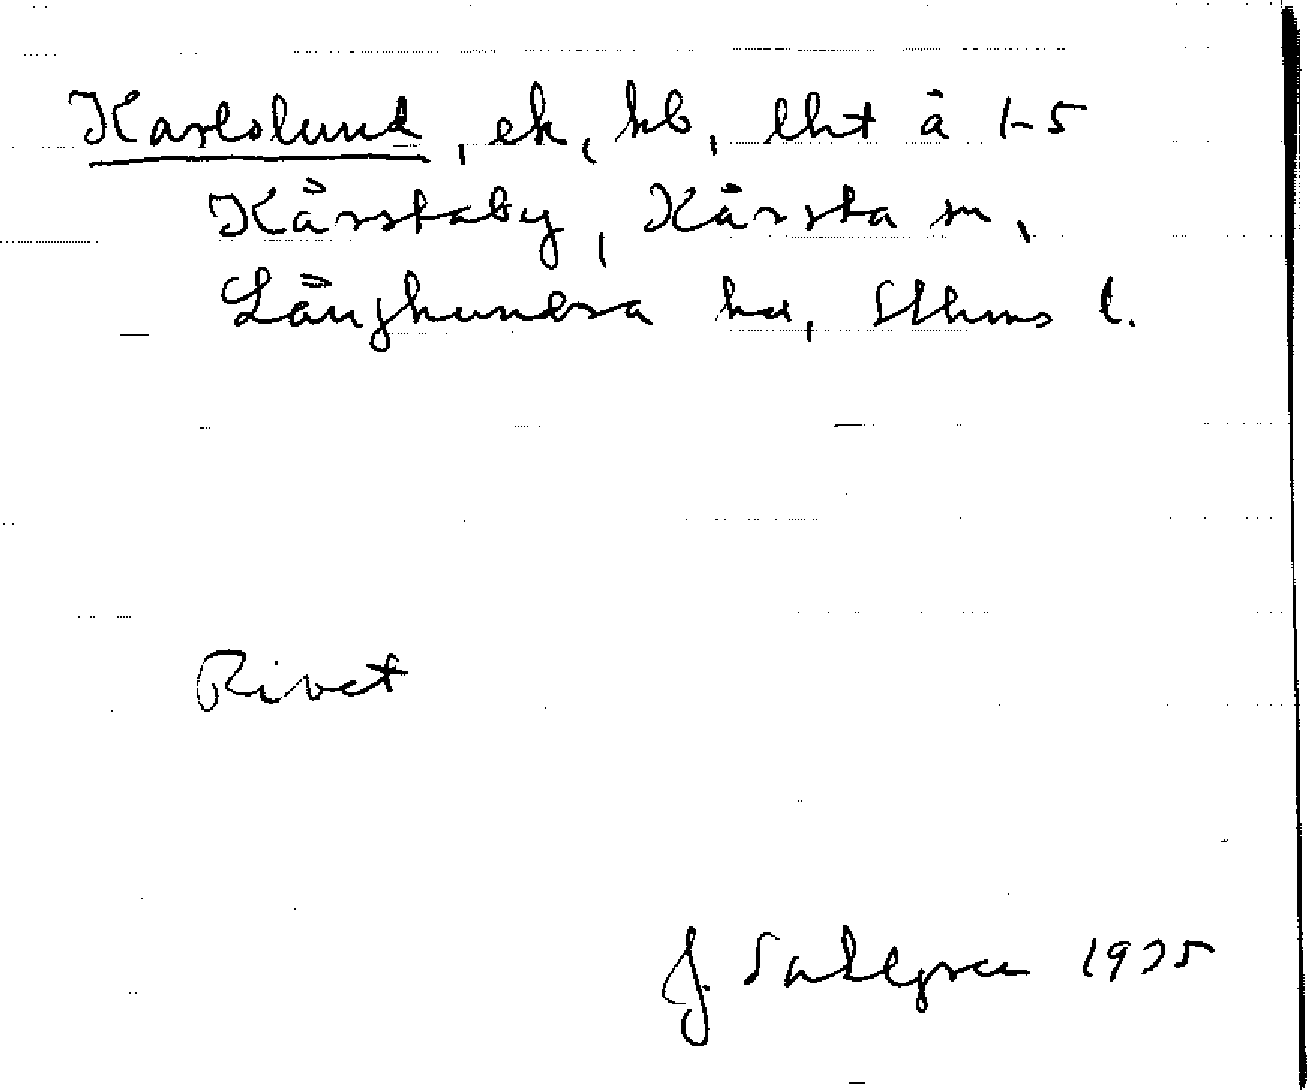 Karlslund, ek, kb, lht å 1-5
Kårstaby, Kårsta sn,
Långhundra hd, Sthms l.
Rivet
J. Sahlgren 1935